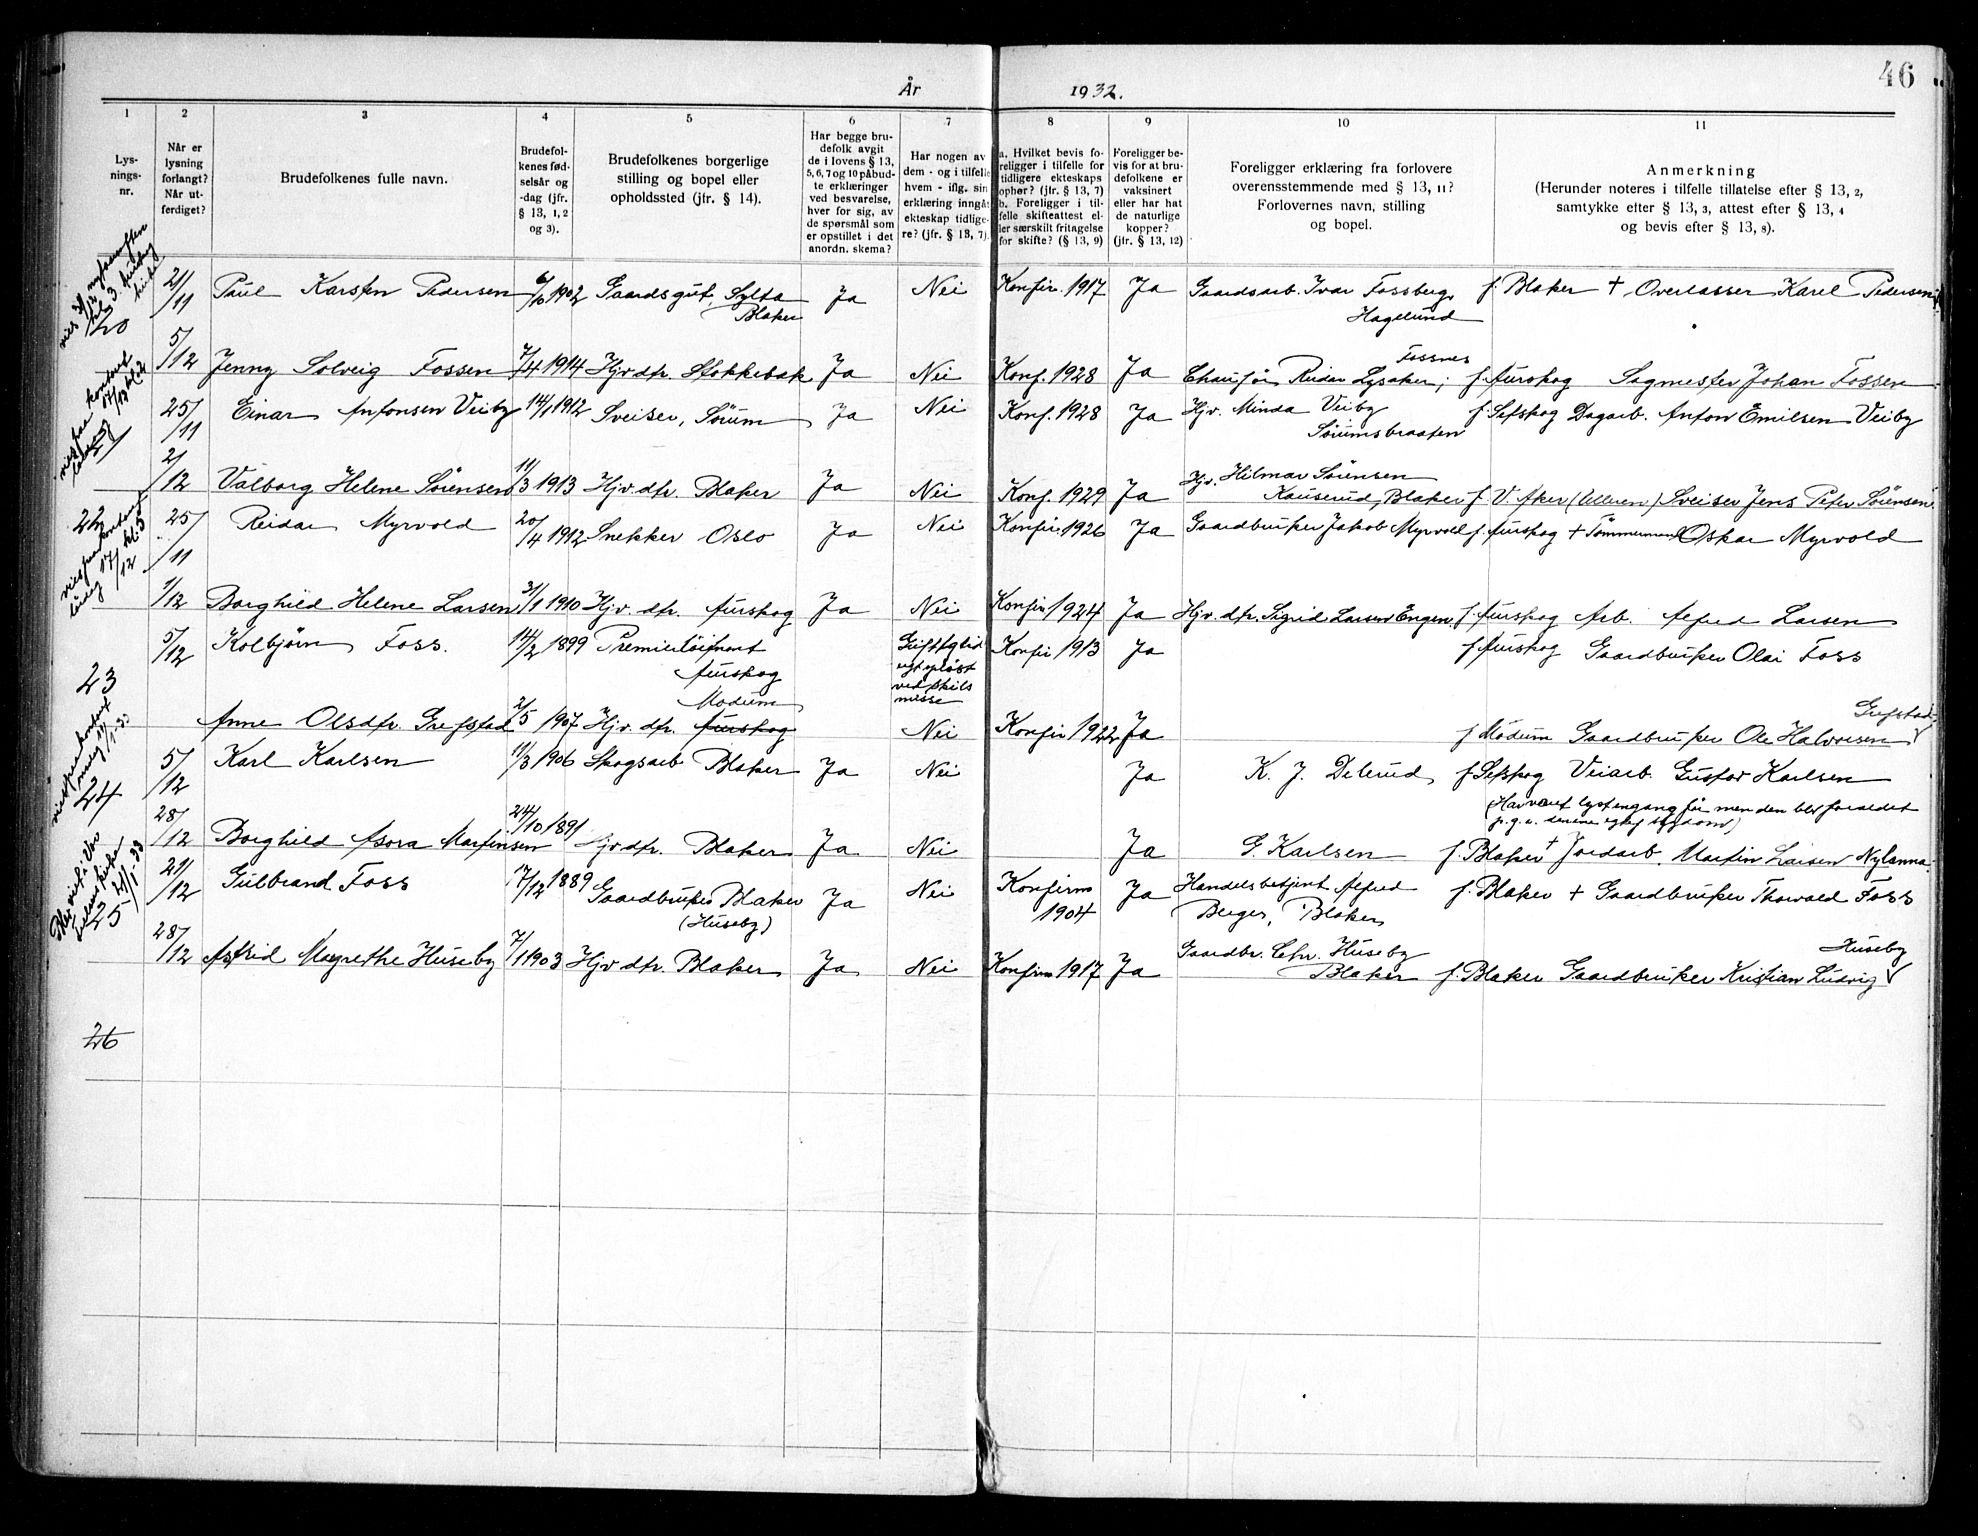 46
År 1932.
1 2 3 4 5 6 7 8 9 10 11
Lys-
nings-
nr.
Når er
lysning
forlangt?
Når ut-
ferdiget?
Brudefolkenes fulle navn.
Brudefol-
kenes fød-
selsår og
-dag (jfr.
§ 13, 1, 2
og 3).
Brudefolkenes borgerlige
stilling og bopel eller
opholdssted (jfr. § 14).
Har begge bru-
defolk avgit
de i lovens § 13,
5, 6, 7 og 10 påbud-
te erklæringer
ved besvarelse,
hver for sig, av
de spørsmål som
er opstillet i det
anordn. skema?
Har nogen av
dem - og i tilfelle
hvem - iflg. sin
erklæring inngåt
ekteskap tidlige-
re? (jfr. § 13, 7).
a. Hvilket bevis fo-
religger i tilfelle for
tidligere ekteskaps
ophør? (jfr. § 13, 7)
b. Foreligger i til-
felle skifteattest el-
ler særskilt fritagelse
for skifte? (§ 13, 9)
Foreligger be-
vis for at bru-
defolkene er
vaksinert
eller har hat
de naturlige
kopper?
(jfr. § 13, 12)
Foreligger erklæring fra forlovere
overensstemmende med § 13, 11?
Forlovernes navn, stilling
og bopel.
Anmerkning
(Herunder noteres i tilfelle tillatelse efter § 13, 2,
samtykke efter § 13, 3, attest efter § 13, 4
og bevis efter § 13, 8).
20
21/11 Paul Karsten Pedersen 1902 Gaardsgut, Sylta Ja Nei Konfir. 1917 Ja Gaardsarb. Ivar Fossberg f. Blaker + Overlasser Karel Pedersen
Blaker
Hagelund
5/12 Jenny Solveig Fossen 7/4 1914 Hjv. dtr. Stokkebak Ja Nei Konf. 1928 Ja Chaufør Reidar Lysaker; f. Aurskog Sagmester Johan Fossen
Fossnes
25/11 Einar Antonsen Veiby 14/1 1912 Sveiser, Sørum Ja Nei Konf. 1928 Ja Hjv. Minda Veiby f. Setskog Dagarb. Anton Emilsen Veiby
Sørumsbraaten
2/12 Valborg Helene Sørensen 11/3 1913 Hjv. dtr. Blaker Ja Nei Konf. 1929 Ja Hjv. Hilmar Sørensen
Kauserud, Blaker f. V. Aker (Ulleren) Sveiser Jens Peter Sørensen
22
25/11 Reidar Myrvold 20/4 1912 Snekker Oslo Ja Nei Konfir. 1926 Ja Gaardbruker Jakob Myrvold f. Aurskog + Tømmermand Oskar Myrvold
1/12 Borghild Helene Larsen 31/1 1910 Hjv. dtr. Aurskog Ja Nei Konfir 1924 Ja Hjv. dtr. Sigrid Larsen Engen f. Aurskog Arb. Alfred Larsen
23
5/12 Kolbjørn Foss. 14/2 1899 Premierløitnant Gift Konfir 1913 Ja f. Aurskog Gaardbruker Olai Foss
Aurskog
ved skils
misse
Modum
Anne Olsdtr. Grefstad 2/5 1907 Hjv. dtr. Aurskog Nei Konfir 1922 Ja f. Modum Gaardbruker Ole Halvorsen
Grefstad
24
5/12 Karl Karlsen 11/3 1906 Skogsarb Blaker Ja Nei Ja K. J. Delerud f. Setskog Veiarb. Gustav Karlsen
(Har været lyst engang før men den blev foreldet
p. g. a. sygdom)
28/12 Borghild Asora Martinsen 24/10 1891 Hjv. dtr. Blaker Ja Nei Ja G. Karlsen f. Blaker + Jordarb. Martin Larsen Nylanna
25
21/12 Gulbrand Foss 17/12 1889 Gaardbruker Blaker Ja Nei Konfirm Ja Handelsbetjent Alfred f. Blaker + Gaardbruker Thorvald Foss
(Huseby)
1904
Berger, Blaker
28/12 Astrid Magrethe Huseby 7/1 1903 Hjv dtr. Blaker Ja Nei Konfirm 1917 Ja Gaardbr. Chr. Huseby
Blaker f. Blaker Gaardbruker Kristian Ludvig
Huseby
26